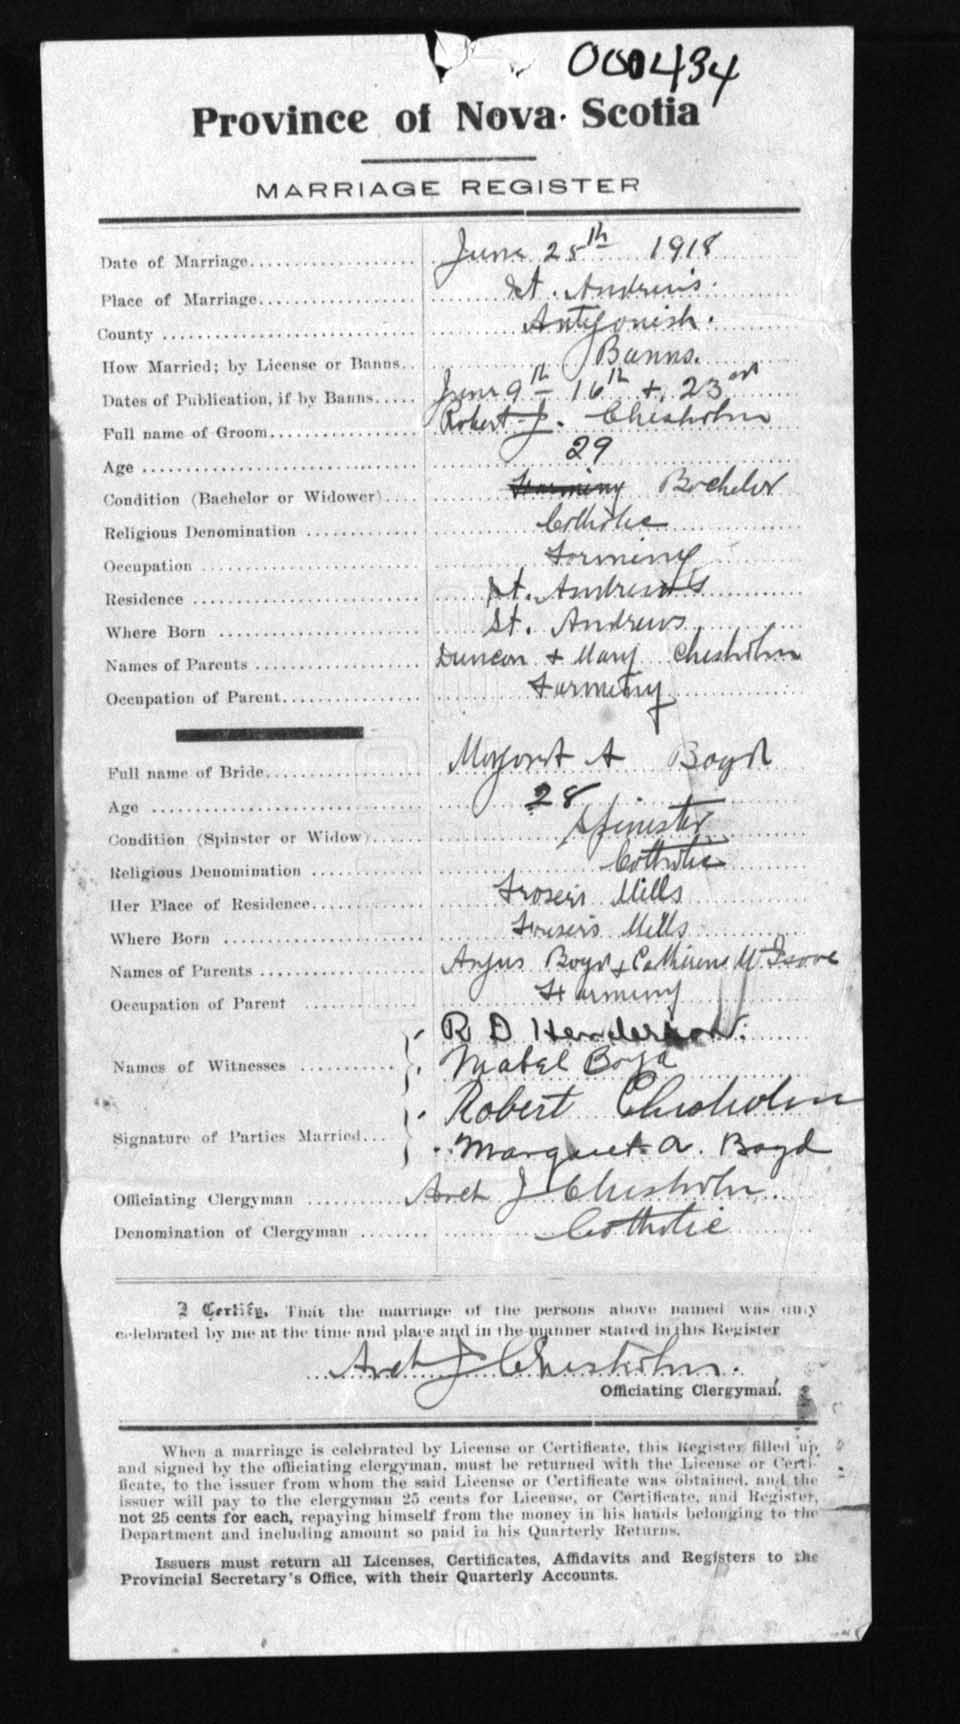 000434
Province of Nova Scotia
MARRIAGE REGISTER
Date of Marriage June 25th 1918
Place of Marriage St. Andrew's.
County Antigonish.
How Married; by License or Banns Banns.
Dates of Publication, if by Banns June 9th 16th + 23rd
Full name of Groom Robert J. Chisholm
Age 29
Condition (Bachelor or Widower) Farming Bachelor
Religious Denomination Catholic
Occupation Farming
Residence St. Andrew's
Where Born St. Andrews
Names of Parents Duncan + Mary Chisholm
Occupation of Parent Farming
Full name of Bride Margaret A Boyd
Age 28
Condition (Spinster or Widow) Spinster
Religious Denomination Catholic
Her Place of Residence Fraser's Mills
Where Born Fraser's Mills
Names of Parents Angus Boyd + Catherine McIsaac
Occupation of Parent Farming
R D Henderson.
Names of Witnesses Mabel Boyd
Robert Chisholm
Signature of Parties Married Margaret A. Boyd
Officiating Clergyman J Chisholm
Denomination of Clergyman Catholic
I Certify, That the marriage of the persons above named was duly
celebrated by me at the time and place and in the manner stated in this Register
J Chisholm.
Officiating Clergyman.
When a marriage is celebrated by License or Certificate, this Register filled up
and signed by the officiating clergyman, must be returned with the License or Certi-
ficate, to the issuer from whom the said License or Certificate was obtained, and the
issuer will pay to the clergyman 25 cents for License, or Certificate, and Register,
not 25 cents for each, repaying himself from the money in his hands belonging to the
Department and including amount so paid in his Quarterly Returns.
Issuers must return all Licenses, Certificates, Affidavits and Registers to the
Provincial Secretary's Office, with their Quarterly Accounts.